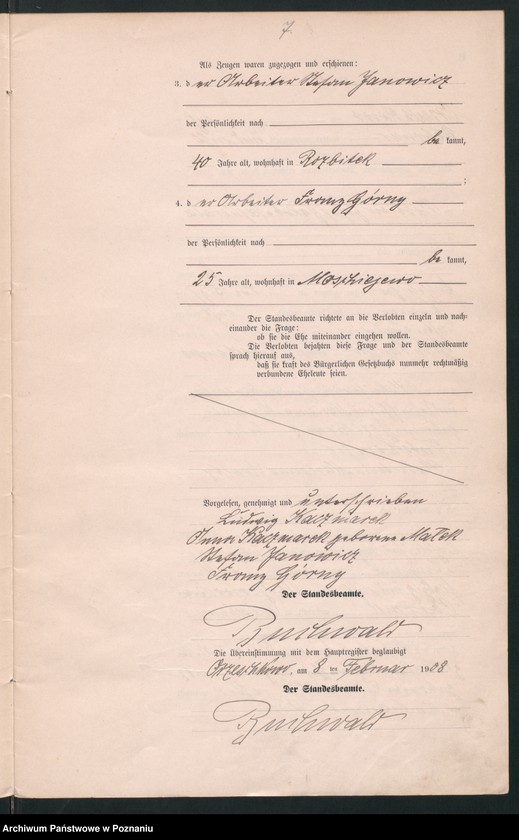 7
Als Zeugen waren zugezogen und erschienen:
3. der Arbeiter Stefan Janowicz
der Persönlichkeit nach
be kannt,
40 Jahre alt, wohnhaft in Rozbitek
;
4. der Arbeiter Franz Górny
der Persönlichkeit nach
be kannt,
25 Jahre alt, wohnhaft in
Der Standesbeamte richtete an die Verlobten einzeln und nach-
einander die Frage:
ob sie die Ehe miteinander eingehen wollen.
Die Verlobten bejahten diese Frage und der Standesbeamte
sprach hierauf aus,
daß sie kraft des Bürgerlichen Gesetzbuchs nunmehr rechtmäßig
verbundene Eheleute seien.
Vorgelesen, genehmigt und unterschrieben
Ludwig Kaczmarek
Anna Kaczmarek geborene Małek
Stefan Janowicz
Franz Górny
Der Standesbeamte.
Buchwald
Die Übereinstimmung mit dem Hauptregister beglaubigt
Orzeschkowo, am 8 ten Februar 1908
Der Standesbeamte.
Buchwald
Archiwum Państwowe w Poznaniu